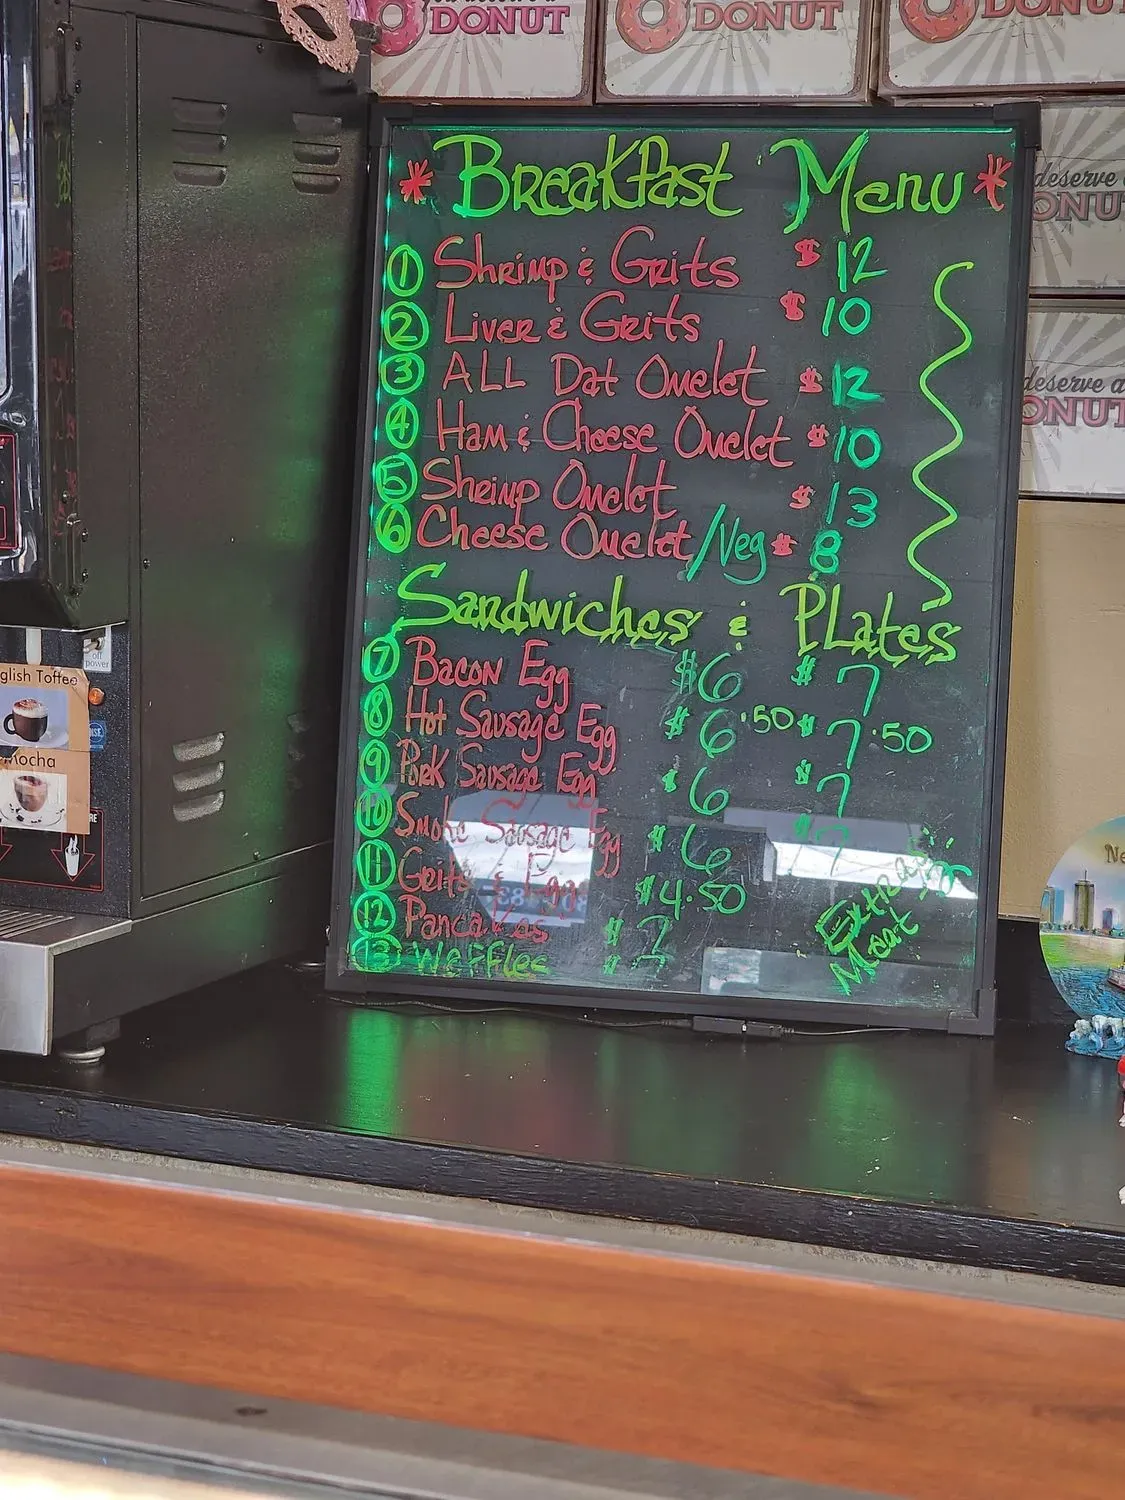 you deserve a
DONUT
DONUT
DONUT
deserve a
DONUT
deserve a
DONUT
* Breakfast Menu *
1 Shrimp & Grits $12
2 Liver & Grits $10
3 ALL Dat Omelet $12
4 Ham & Cheese Omelet $10
5 Shrimp Omelet $13
6 Cheese Omelet/Veg $8
Sandwiches & Plates
7 Bacon Egg $6 $7
8 Hot Sausage Egg $6.50 $7.50
9 Pork Sausage Egg $6 $7
10 Smoke Sausage Egg $6 $7
11 Grits & Eggs $4.50
12 Pancakes $7
13 Waffles 7
Extra
Meat
off
power
glish Toffee
Mocha
Ne